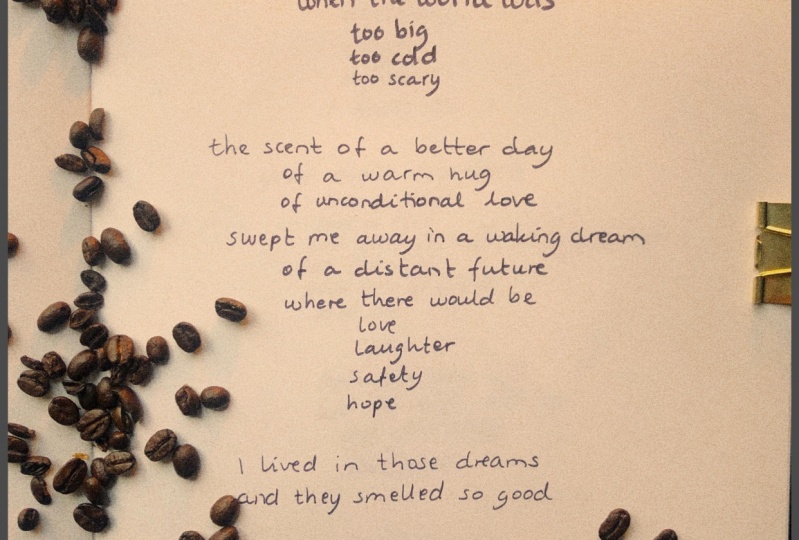 when the world was
too big
too cold
too scary
the scent of a better day
of a warm hug
of unconditional love
swept me away in a waking dream
of a distant future
where there would be
love
laughter
safety
hope
I lived in those dreams
and they smelled so good